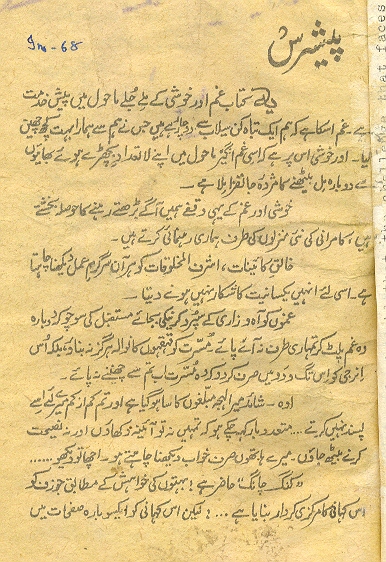 Im - 68
پیشرس
یہ کتاب غم اور خوشی کے ملے جلے ماحول میں پیش خدمت
ہے غم اسکا ہے کہ ہم ایک تباہ کن سیلاب سے دوچار ہوئے ہیں جس نے ہم سے ہمارا بہت کچھ چھین
لیا۔ اور خوشی اس پر ہے کہ اسی غم انگیز ماحول میں اپنے لاتعداد بچھڑے ہوئے بھائیوں
سے دوبارہ مل بیٹھنے کا مژدہ جانفزا ملا ہے۔
خوشی اور غم کے یہی وقفے ہمیں آگے بڑھتے رہنے کا حوصلہ بخشتے
ہیں، کامرانی کی نئی منزلوں کی طرف ہماری رہنمائی کرتے ہیں۔
خالقِ کائینات، اشرف المخلوقات کو ہر آن سرگرمِ عمل دیکھنا چاہتا
ہے۔ اسی لئے انہیں یکسانیت کا شکار نہیں ہونے دیتا۔
غموں کو آہ و زاری کے سپرد کرنیکی بجائے مستقبل کی سوچو کہ دوبارہ
وہ غم پلٹ کر تمہاری طرف نہ آنے پائے۔ مسرت کو قہقہوں کا نوالہ ہرگز نہ بناؤ، بلکہ اُس
انرجی کو اس تگ و دو میں صرف کر دو کہ وہ مسرت اب تم سے چھننے نہ پائے۔
اوہ۔ شاند میرا لہجہ مبلغوں کا سا ہو گیا ہے اور تم کم از کم میرے لئے اسے
پسند نہیں کرتے ... متعدد بار کہہ چکے ہو کہ تمہیں نہ تو آئینہ دکھاؤں اور نہ نصیحت
کرنے بیٹھ جاؤں۔ میرے ہاتھوں صرف خواب دیکھنا چاہتے ہو۔ اچھا تو دیکھو......
"کنگ چانگ" حاضر ہے! بہتوں کی خواہش کے مطابق جوزف کو
اس کہانی کا مرکزی کردار بنایا ہے ...! لیکن اس کہانی کو ایکسو بارہ صفحات میں
that faces